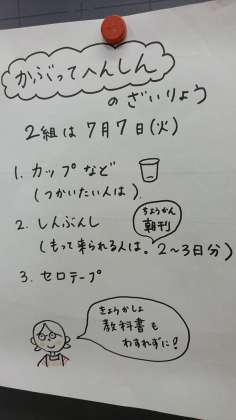 かぶってへんしん
のざいりょう
2組は7月7日(火)
1. カップなど
(つかいたい人は)
2. しんぶんし
ちょうかん
朝刊
(もって来られる人は。2〜3日分)
3. セロテープ
きょうかしょ
教科書も
わすれずに!